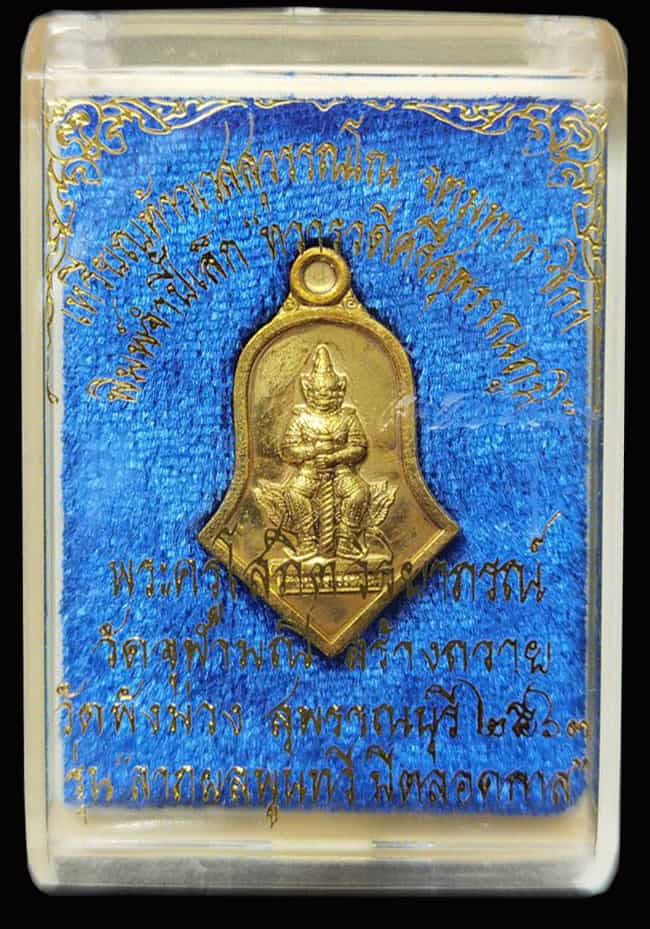 เหรียญท้าวเวสสุวรรณโณ จตุมหาราชิกา
พิมพ์จำปีเล็ก "ทวารวดีศรีสุพรรณภูมิ"
พระครูโสภิตวิริยาภรณ์
วัดจุฬามณี สร้างถวาย
วัดผังม่วง สุพรรณบุรี ๒๕๖๓
รุ่น "ลาภผลพูนทวี มีตลอดกาล"